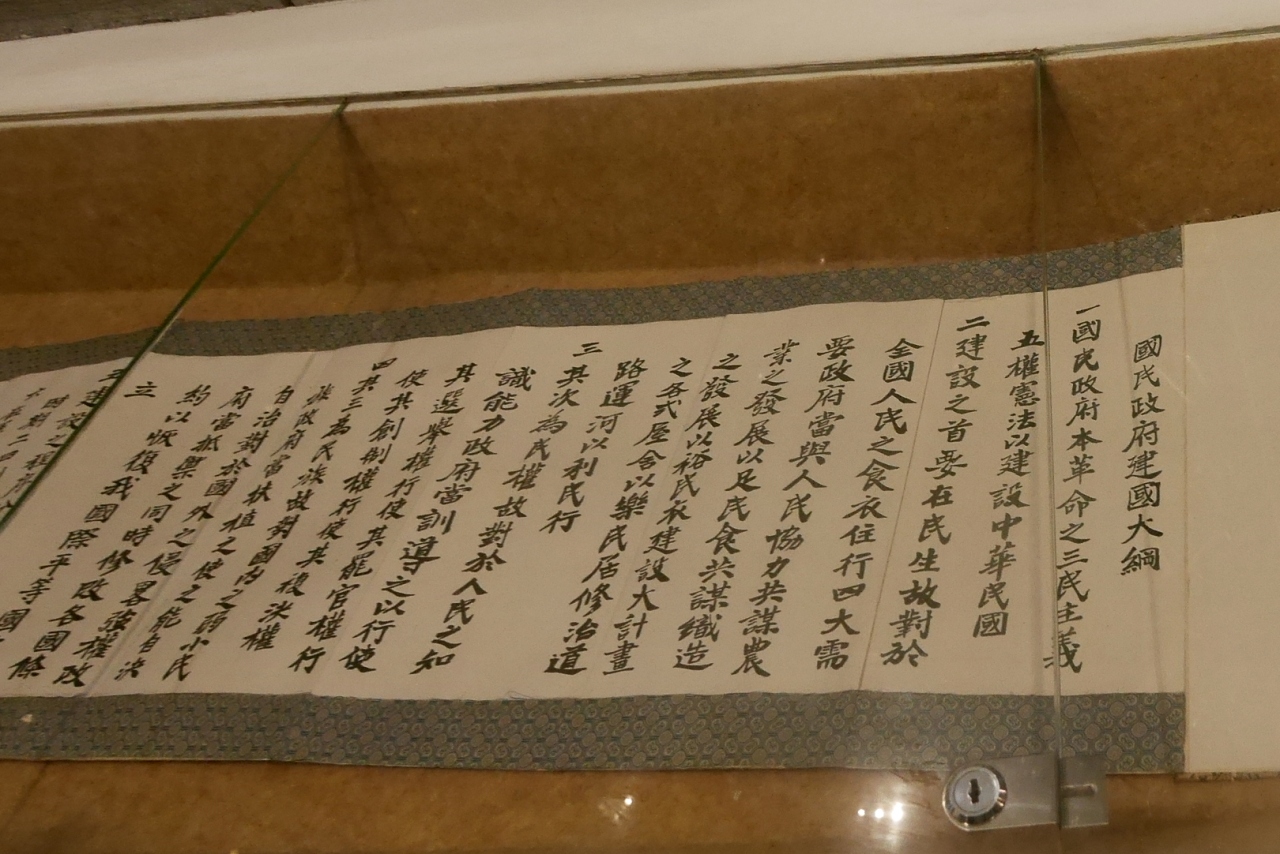 國民政府建國大綱
一國民政府本革命之三民主義
五權憲法以建設中華民國
二建設之首要在民生故對於
全國人民之食衣住行四大需
要政府當與人民協力共謀農
業之發展以足民食共謀織造
之發展以裕民衣建設大計畫
之各式屋舍以樂民居修治道
路運河以利民行
三其次為民權故對於人民之知
識能力政府當訓導之以行使
其選舉權行使其罷官權行
使其創制權行使其複決權
四其三為民族故對國內之弱小民
族政府當扶植之使之能自決
自治對於國外之侵畧強權政
府當抵禦之同時修改各國條
約以恢復我國際平等國
立
五建設之程序